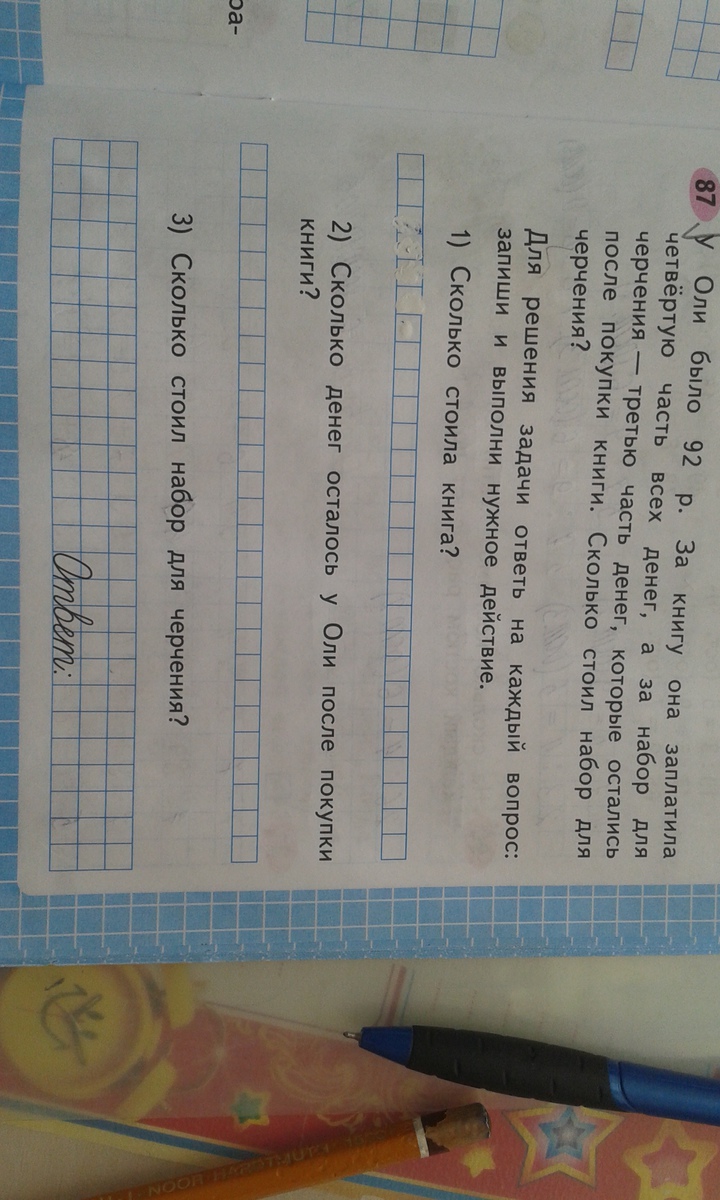 ра-
87 У Оли было 92 р. За книгу она заплатила
четвёртую часть всех денег, а за набор для
черчения — третью часть денег, которые остались
после покупки книги. Сколько стоил набор для
черчения?
Для решения задачи ответь на каждый вопрос:
запиши и выполни нужное действие.
1) Сколько стоила книга?
2) Сколько денег осталось у Оли после покупки
книги?
3) Сколько стоил набор для черчения?
Ответ: